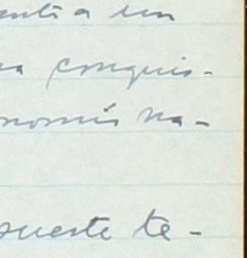 anti a un
na conquis-
nomía na-
sueste te-